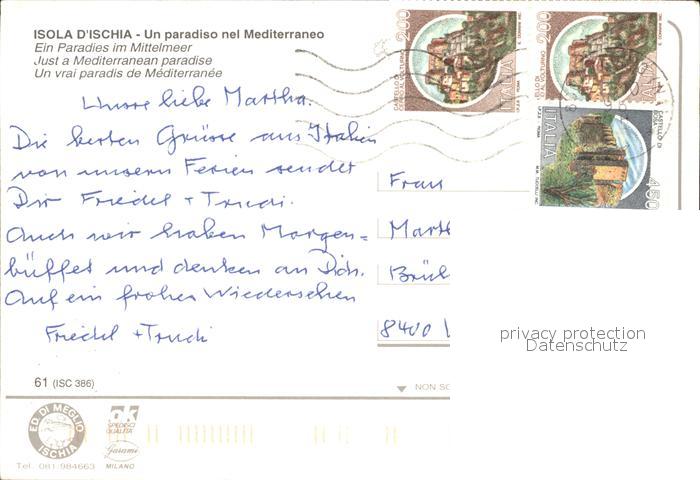 ISOLA D'ISCHIA - Un paradiso nel Mediterraneo
Ein Paradies im Mittelmeer
Just a Mediterranean paradise
Un vrai paradis de Méditerranée
Unsre liebe Martha.
Die besten Grüsse aus Italien
von unsern Ferien sendet
Dir Friedel + Trudi.
Auch wir haben Morgen=
büffet und denken an Dich.
Auf ein frohes Wiedersehen
Friedel + Trudi
61 (ISC 386)
ED. DI MEGLIO
ISCHIA
Tel. 081.984663
ok
SPEDISCI
QUALITÀ
Garami
MILANO
200
ITALIA
200
ITALIA
450
ITALIA
Frau
Marth
Brüh
8400
NON SC
privacy protection
Datenschutz